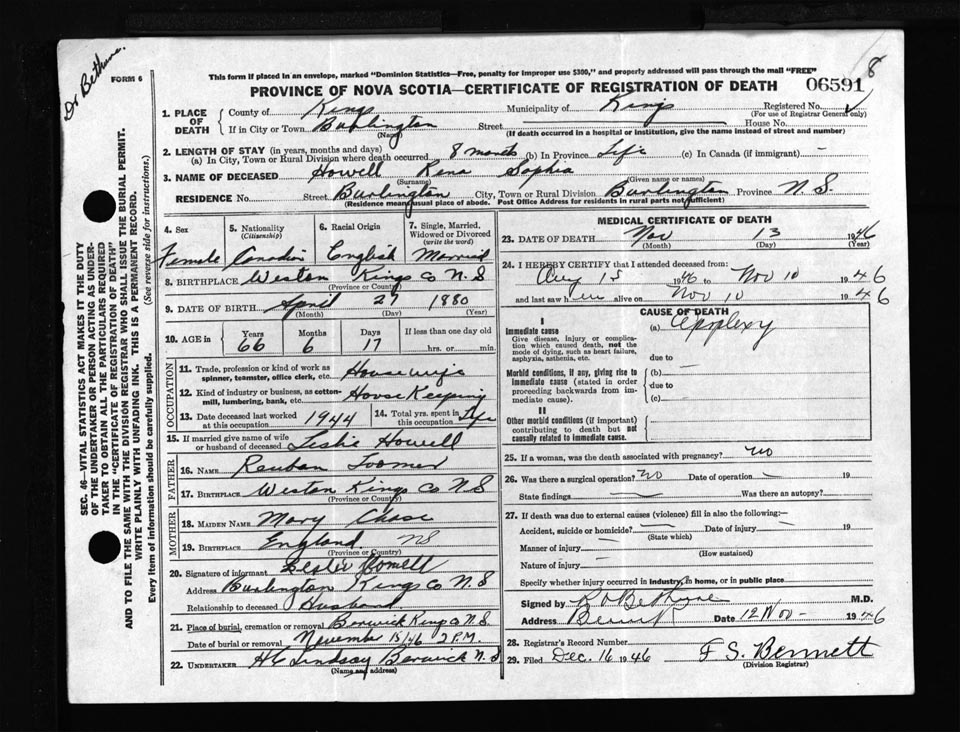 Dr Bethune.
FORM 6
8
This form if placed in an envelope, marked "Dominion Statistics—Free, penalty for improper use $300," and properly addressed will pass through the mail "FREE"
PROVINCE OF NOVA SCOTIA—CERTIFICATE OF REGISTRATION OF DEATH 06591
SEC. 46—VITAL STATISTICS ACT MAKES IT THE DUTY
OF THE UNDERTAKER OR PERSON ACTING AS UNDER-
TAKER TO OBTAIN ALL THE PARTICULARS REQUIRED
IN THE "CERTIFICATE OF REGISTRATION OF DEATH"
AND TO FILE THE SAME WITH THE DIVISION REGISTRAR WHO SHALL ISSUE THE BURIAL PERMIT.
WRITE PLAINLY WITH UNFADING INK. THIS IS A PERMANENT RECORD.
Every item of information should be carefully supplied. (See reverse side for instructions.)
1. PLACE OF DEATH County of Kings Municipality of Kings Registered No.
(For use of Registrar General only)
If in City or Town Burlington Street House No.
(Name) (If death occurred in a hospital or institution, give the name instead of street and number)
2. LENGTH OF STAY (in years, months and days)
(a) In City, Town or Rural Division where death occurred 8 months (b) In Province Life (c) In Canada (if immigrant) –
3. NAME OF DECEASED Howell Rena Sophia
(Surname) (Given name or names)
RESIDENCE No. Street Burlington City, Town or Rural Division Burlington Province N.S.
(Residence means usual place of abode. Post Office Address for residents in rural parts not sufficient)
4. Sex 5. Nationality (Citizenship) 6. Racial Origin 7. Single, Married, Widowed or Divorced (write the word)
Female Canadin English Married
8. BIRTHPLACE Weston Kings Co N.S
(Province or Country)
9. DATE OF BIRTH April 27 1880
(Month) (Day) (Year)
10. AGE in Years Months Days If less than one day old
66 6 17 hrs. or min.
OCCUPATION
11. Trade, profession or kind of work as spinner, teamster, office clerk, etc. Housewife
12. Kind of industry or business, as cotton-mill, lumbering, bank, etc. House Keeping
13. Date deceased last worked at this occupation 1944 14. Total yrs. spent in this occupation Life
15. If married give name of wife or husband of deceased Leslie Howell
FATHER
16. NAME Reuban Toomer
17. BIRTHPLACE Weston Kings Co N.S
(Province or Country)
MOTHER
18. MAIDEN NAME Mary Chase
19. BIRTHPLACE England. NS
(Province or Country)
20. Signature of informant Leslie Howell
Address Burlington Kings Co N.S
Relationship to deceased Husband
21. Place of burial, cremation or removal Berwick Kings Co N.S.
Date of burial or removal November 15/46 2 P.M.
22. UNDERTAKER H C Lindsay Berwick N.S
(Name and address)
MEDICAL CERTIFICATE OF DEATH
23. DATE OF DEATH Nov 13 1946
(Month) (Day) (Year)
24. I HEREBY CERTIFY that I attended deceased from:
Aug 15 1946 to Nov 10 1946
and last saw her alive on Nov 10 1946
CAUSE OF DEATH
I
Immediate cause (a) Apoplexy
Give disease, injury or complication which caused death, not the mode of dying, such as heart failure, asphyxia, asthenia, etc.
due to
Morbid conditions, if any, giving rise to immediate cause (stated in order proceeding backwards from immediate cause).
(b) —
due to
(c)
II
Other morbid conditions (if important) contributing to death but not causally related to immediate cause.
25. If a woman, was the death associated with pregnancy? no
26. Was there a surgical operation? no Date of operation – 19
State findings Was there an autopsy?
27. If death was due to external causes (violence) fill in also the following:—
Accident, suicide or homicide? Date of injury 19
(State which)
Manner of injury
(How sustained)
Nature of injury
Specify whether injury occurred in industry, in home, or in public place
Signed by Bethune M.D.
Address Berwick Date 12 Nov – 1946
28. Registrar's Record Number
29. Filed Dec. 16 1946 F S. Bennett
(Division Registrar)